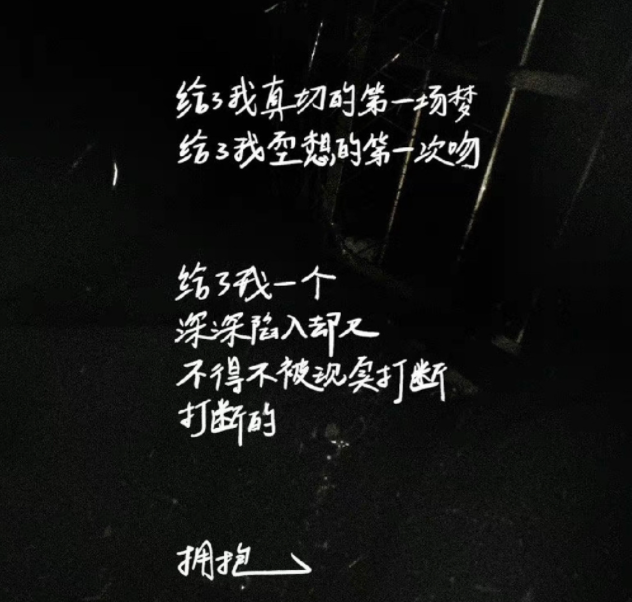 给了我真切的第一场梦
给了我空想的第一次吻
给了我一个
深深陷入却又
不得不被现实打断
打断的
拥抱